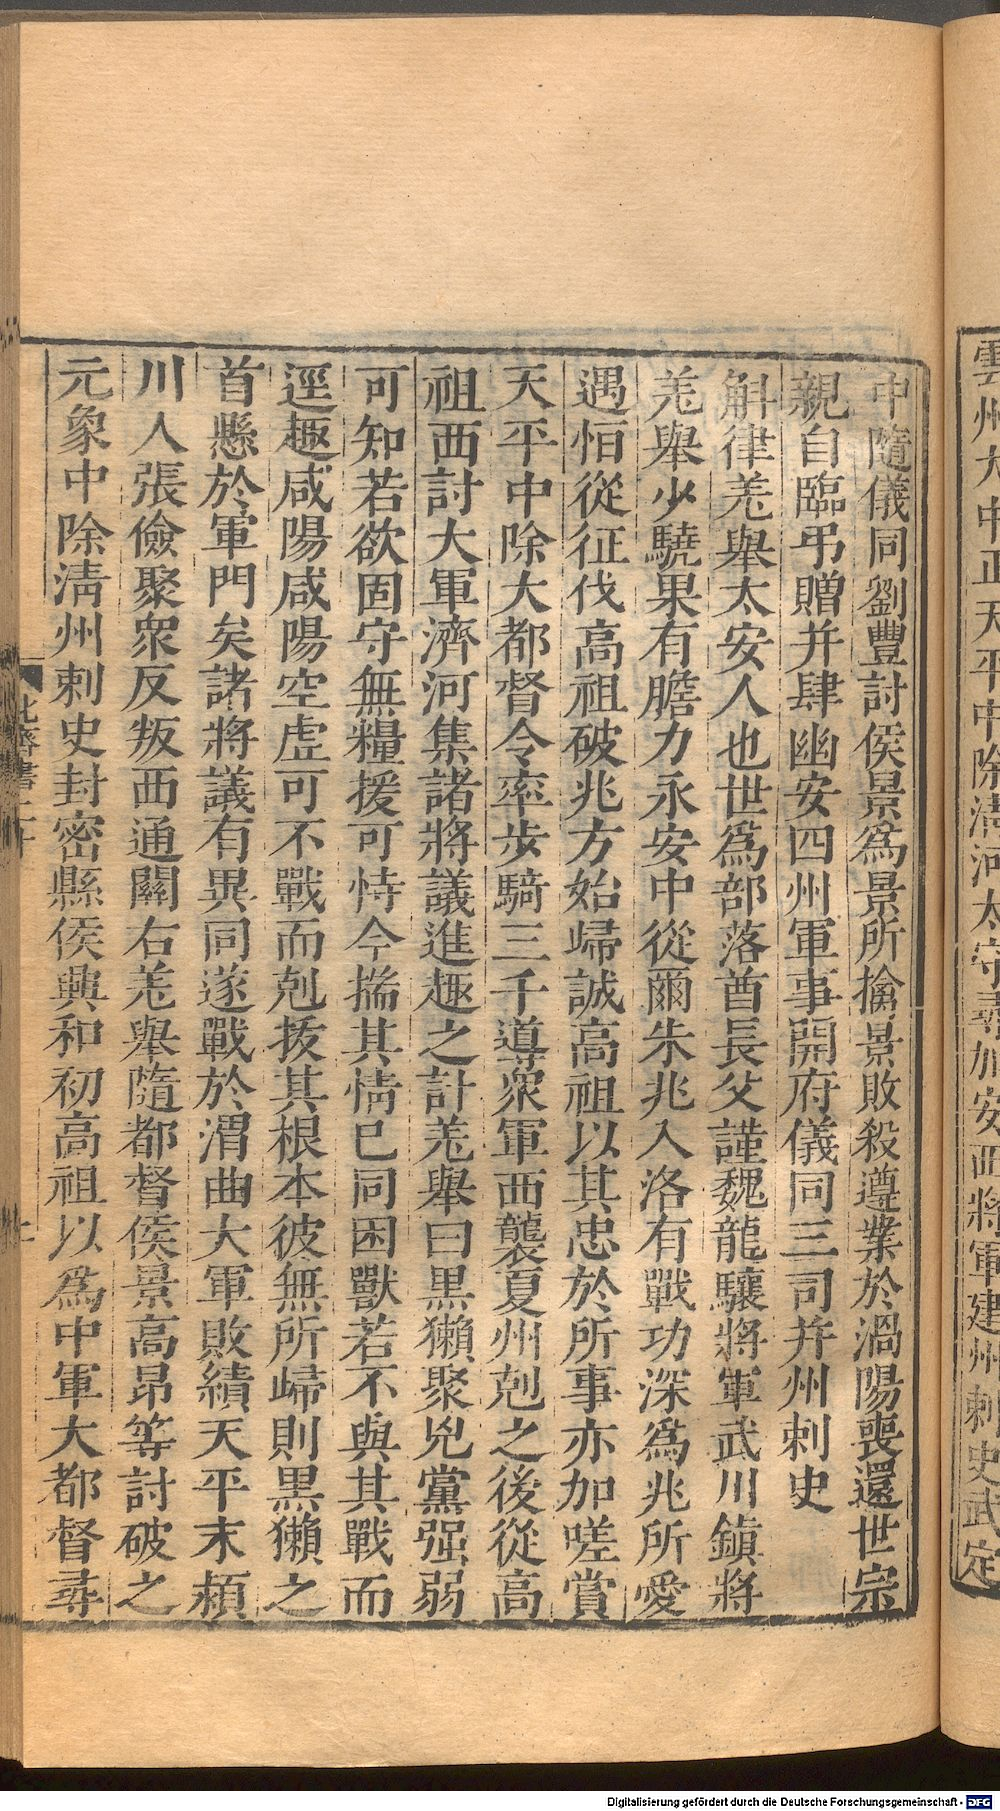 雲州大中正天平中除清河太守尋加安西將軍建州刺史武定
中隨儀同劉豐討侯景爲景所擒景敗殺遵業於渦陽喪還世宗
親自臨弔贈并肆幽安四州軍事開府儀同三司并州刺史
斛律羌舉太安人也世爲部落酋長父謹魏龍驤將軍武川鎮將
羌舉少驍果有膽力永安中從爾朱兆入洛有戰功深爲兆所愛
遇恒從征伐高祖破兆方始歸誠高祖以其忠於所事亦加嗟賞
天平中除大都督令率步騎三千導衆軍西襲夏州剋之後從高
祖西討大軍濟河集諸將議進趣之計羌舉曰黑獺聚兇黨强弱
可知若欲固守無糧援可恃今揣其情已同困獸若不與其戰而
逕趣咸陽咸陽空虛可不戰而剋拔其根本彼無所歸則黑獺之
首懸於軍門矣諸將議有異同遂戰於渭曲大軍敗績天平末潁
川人張儉聚衆反叛西通關右羌舉隨都督侯景高昂等討破之
元象中除清州刺史封密縣侯興和初高祖以爲中軍大都督尋
北齊書二十
Digitalisierung gefördert durch die Deutsche Forschungsgemeinschaft - DFG